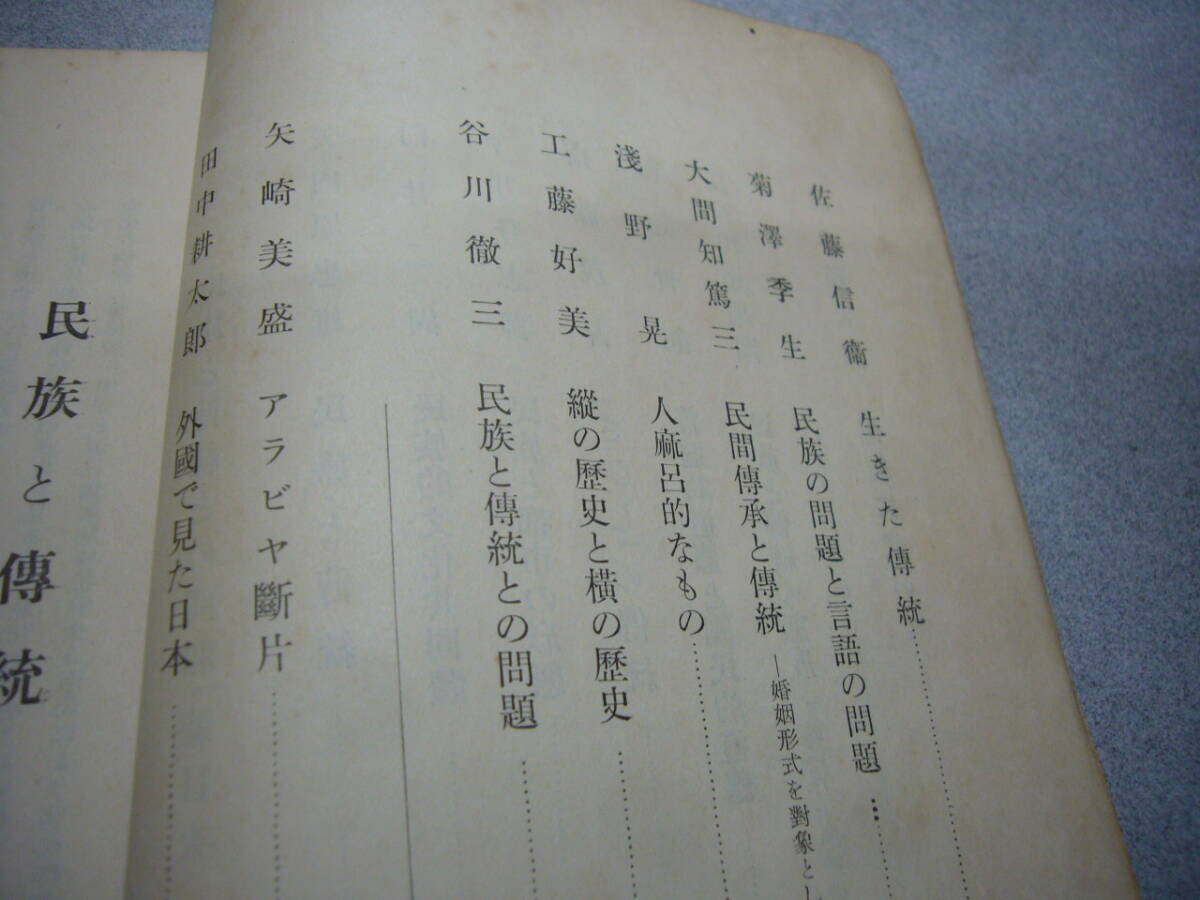 佐藤信衞 生きた傳統
菊澤季生 民族の問題と言語の問題
大間知篤三 民間傳承と傳統 ―婚姻形式を對象とし
淺野晃 人麻呂的なもの
工藤好美 縱の歷史と橫の歷史
谷川徹三 民族と傳統との問題
矢崎美盛 アラビヤ斷片
田中耕太郎 外國で見た日本
民族と傳統